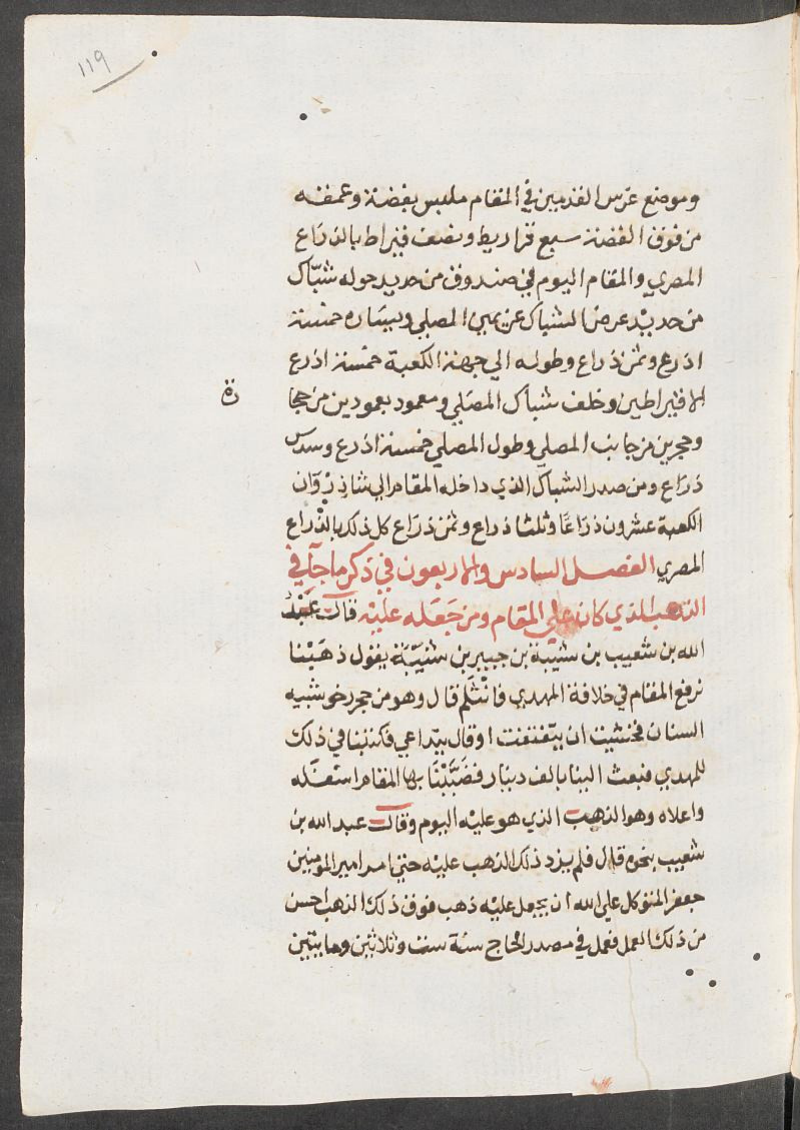 ١١٩
وموضع غرس القدمين في المقام ملبس بفضة وعمقه
من فوق الفضة سبع قراريط ونصف قيراط بالذراع
المصري والمقام اليوم في صندوق من حديد حوله شبّاك
من حديد عرض الشباك عن يمين المصلي ويساره خمسة
اذرع وثمن ذراع وطوله الي جهة الكعبة خمسة اذرع
الا قيراطين وخلف شباك المصلي ومعمود بعمودين من حجا
رة
وحجرين من جانب المصلي وطول المصلي خمسة اذرع وسدس
ذراع ومن صدر الشباك الذي داخله المقام الي شاذِرْوَان
الكعبة عشرون ذراعًا وثلثا ذراع وثمن ذراع كل ذلك بالذراع
المصري الفصل السادس والاربعون في ذكر ما جآء في
الذهب الذي كان علي المقام ومن جَعَله عليْه قال عَبْدُ
الله بن شعيب بن شيْبة بن جبير بن شيْبَة يقول ذهَبْنا
نرفع المقام في خلافة المهدي فانْثَلَم قال وهو من حجر رخو شبيه
السنان فخشيت ان يتفتفت او قال يتداعي فكتبنا في ذلك
للمهدي فبعث الينا بالف دينار فضَبَّبْنَا بها المقام اسفله
واعلاه وهو الذهب الذي هو عليْه اليوم وقال عبد الله بن
شعيب بنحوه قال فلم يزد ذلك الذهب عليْه حتي امر امير المومنين
جعفر المتوكل علي الله ان يجعل عليْه ذهب فوق ذلك الذهب احسن
من ذلك العمل فعمل في مصدر الحاج سنة ست وثلاثين ومايتين